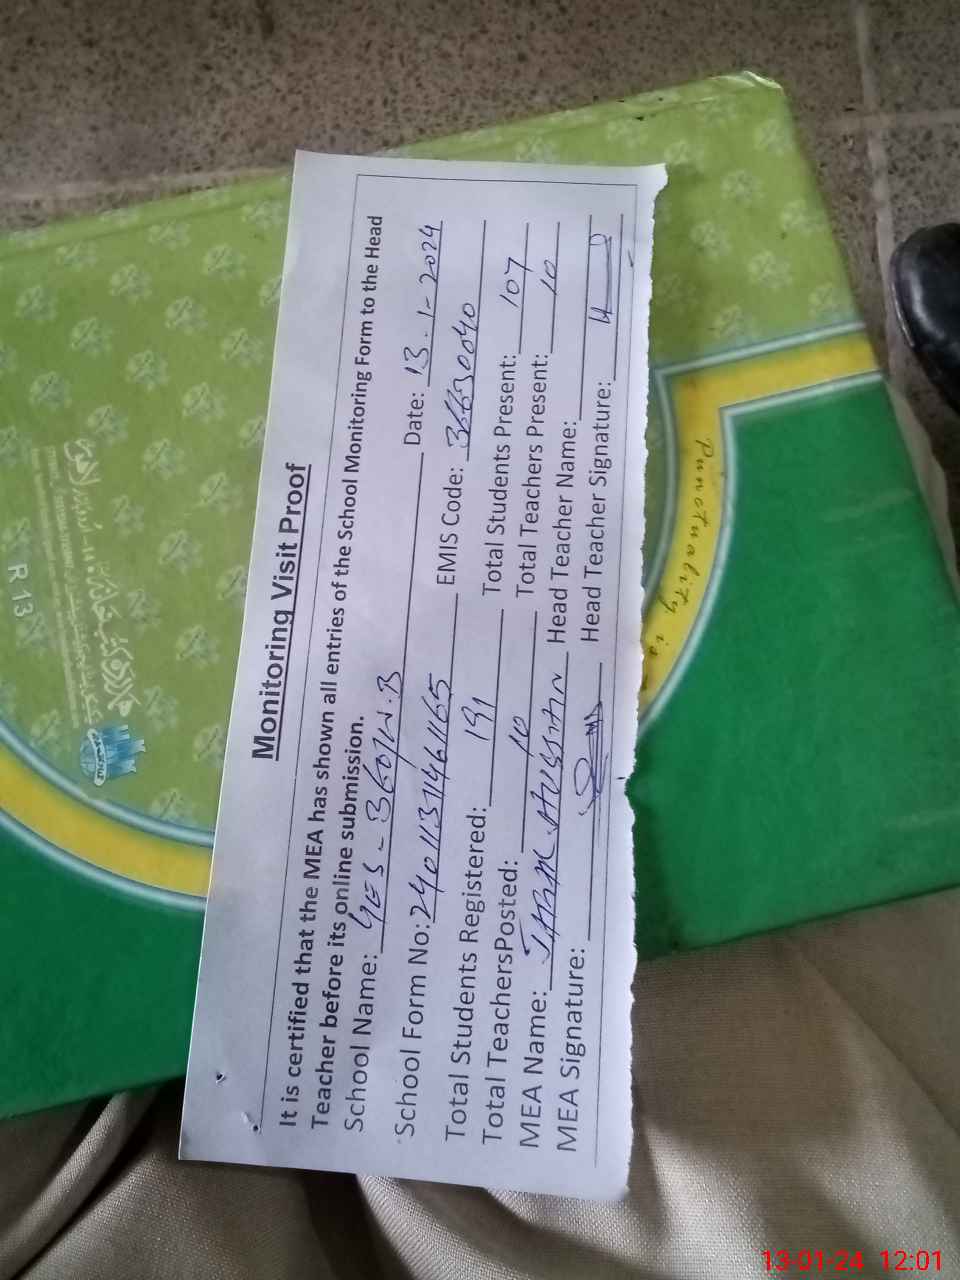 Monitoring Visit Proof
It is certified that the MEA has shown all entries of the School Monitoring Form to the Head
Teacher before its online submission.
School Name: GES-360/W.B Date: 13-1-2024
School Form No: 24011311461165 EMIS Code: 36630040
Total Students Registered: 191 Total Students Present: 107
Total TeachersPosted: 10 Total Teachers Present: 10
MEA Name: Head Teacher Name:
MEA Signature: Head Teacher Signature:
Punctuality is
R 13
13-01-24 12:01